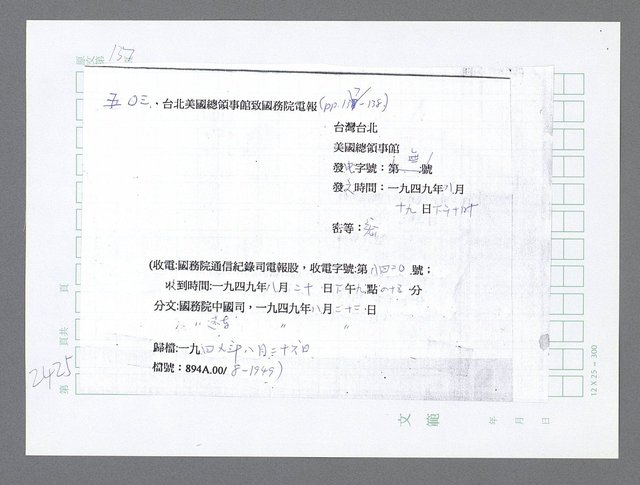 137
五〇三、台北美國總領事館致國務院電報(pp.137-138)
台灣台北
美國總領事館
發電字號：第 號
發文時間：一九四九年八月
十九日下午十時
密等：密
(收電:國務院通信紀錄司電報股，收電字號:第八四二〇號；
收到時間:一九四九年八月二十日下午九點四十五分
分文:國務院中國司，一九四九年八月二十二日
〃 〃
歸檔:一九四九年八月二十六日
檔號：894A.00/8-1949)
2425
第 頁共 頁
12 X 25 = 300
文 範
年 月 日